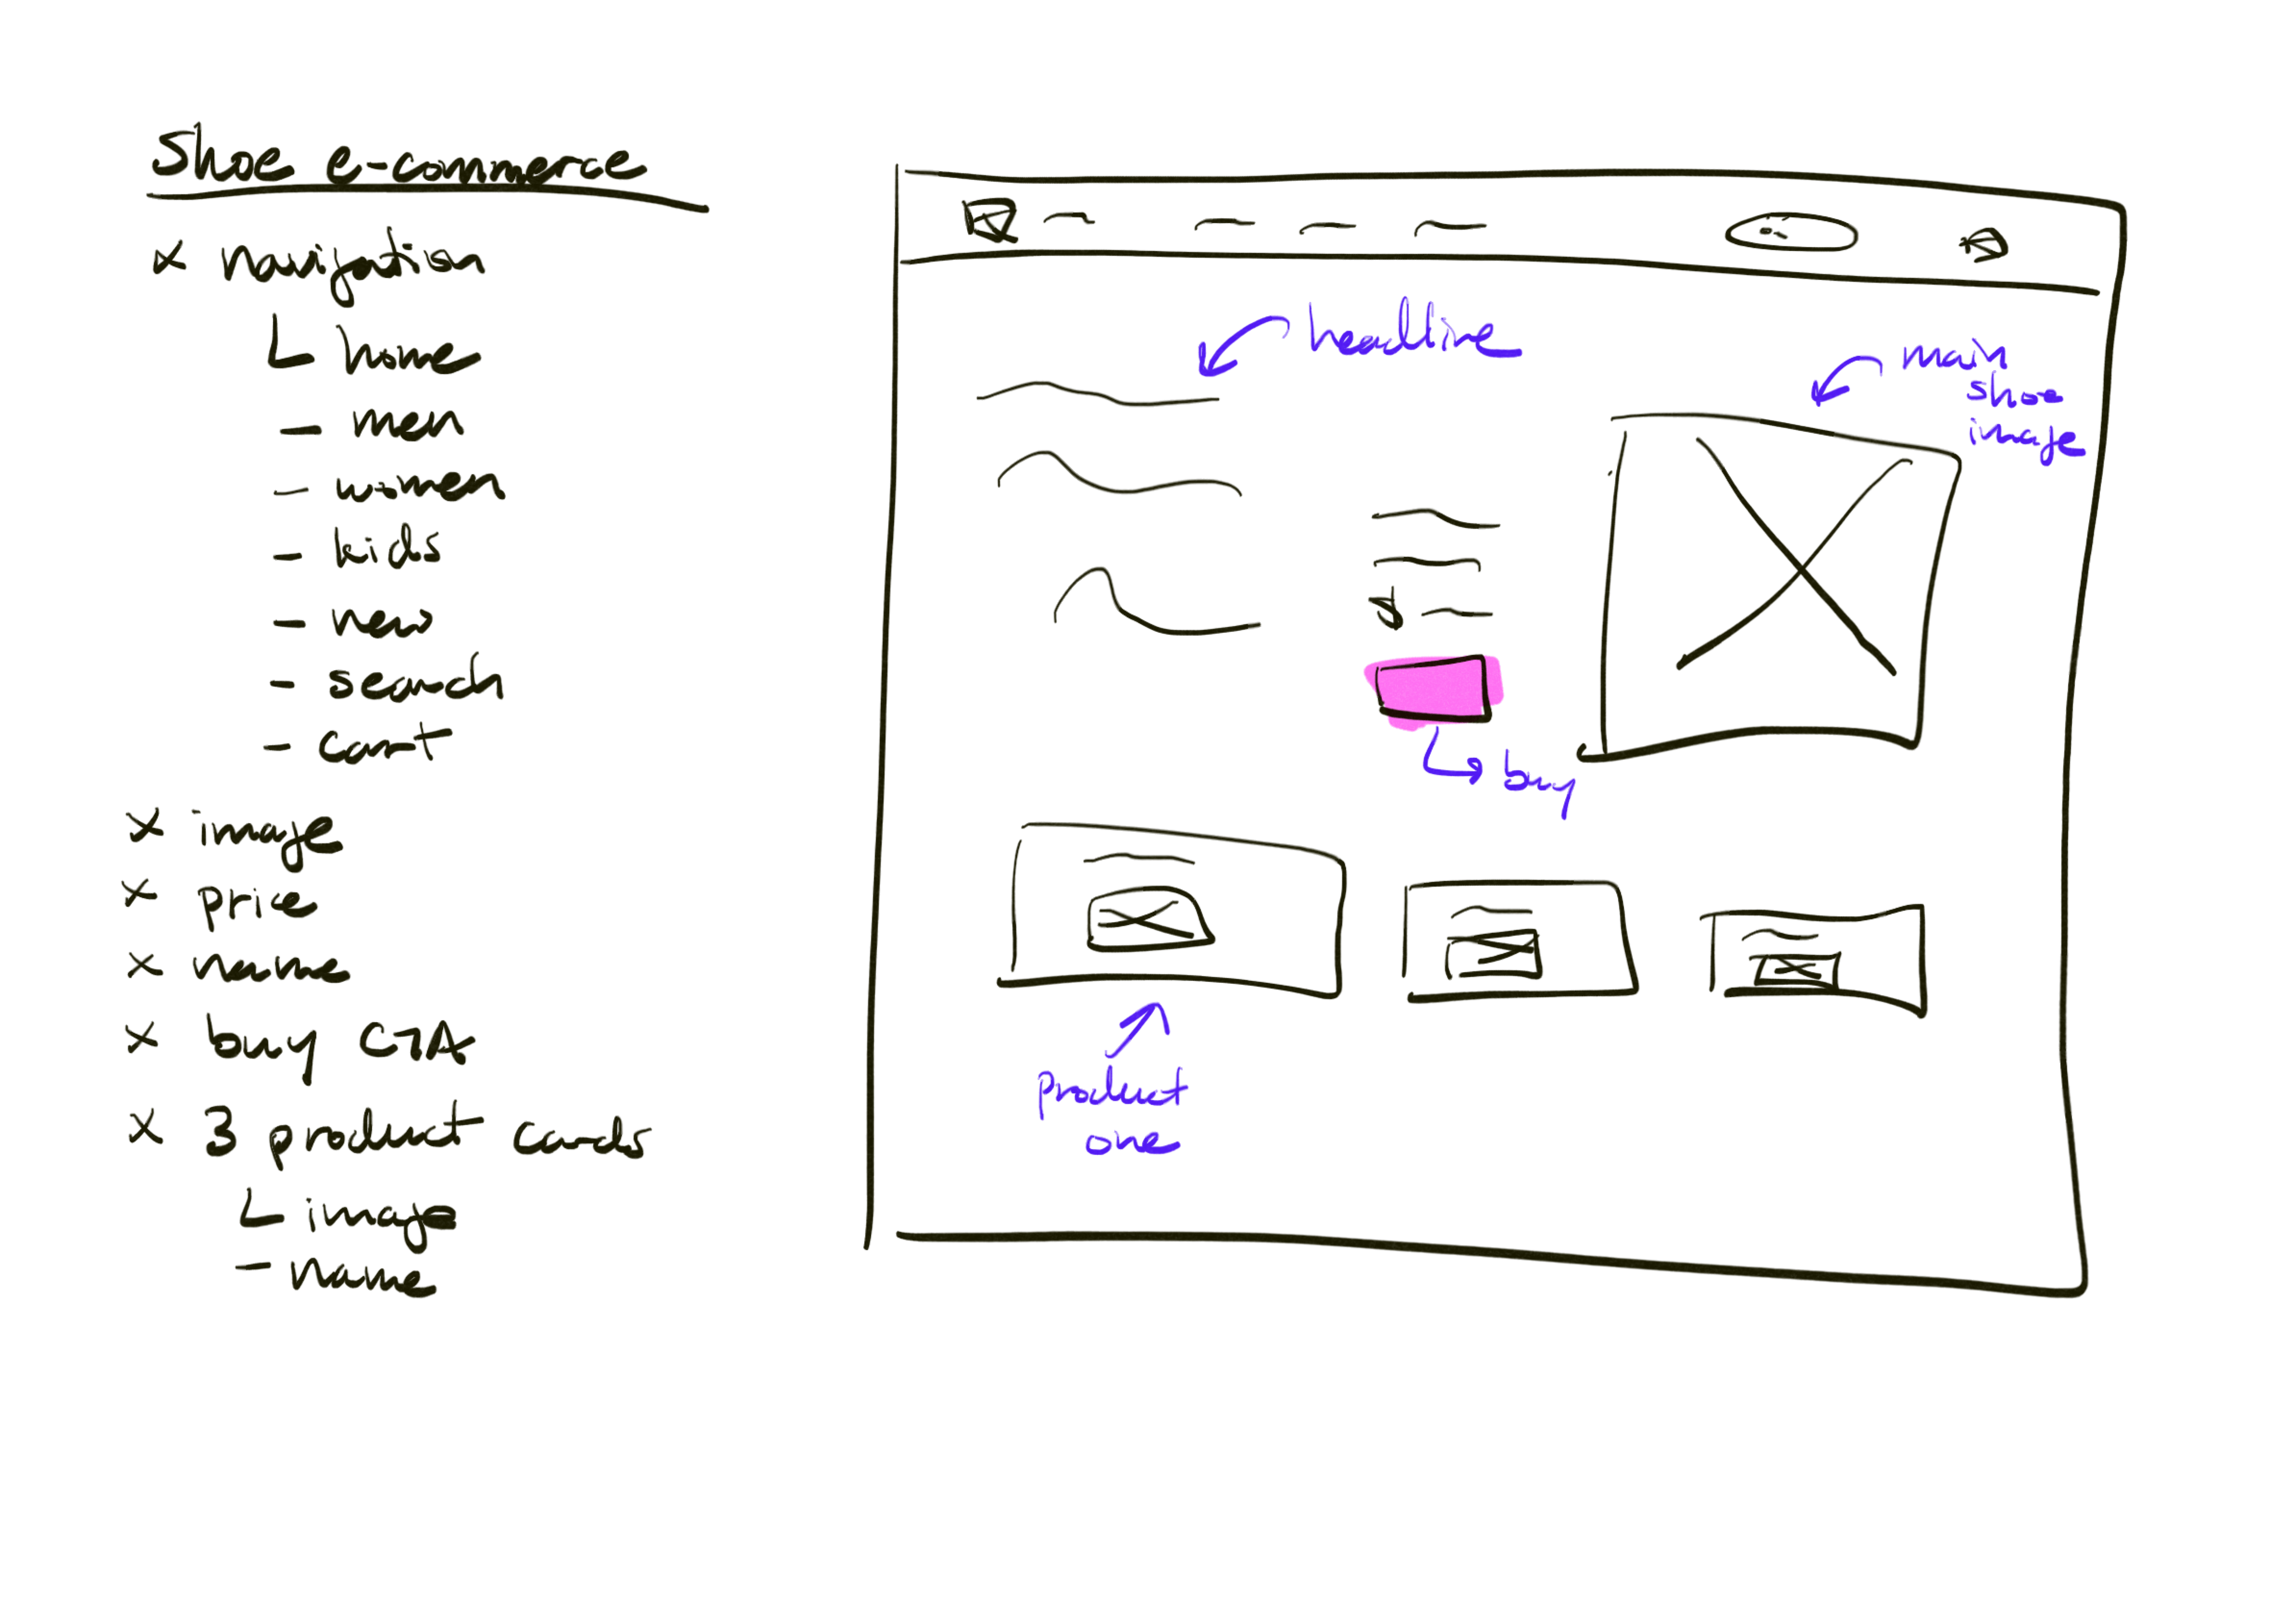 Shoe e-commerce
x navigation
home
- men
- women
- kids
- new
- search
- cart
x image
x price
x name
x buy CTA
x 3 product cards
image
- name
headline
main
shoe
image
$
buy
product
one